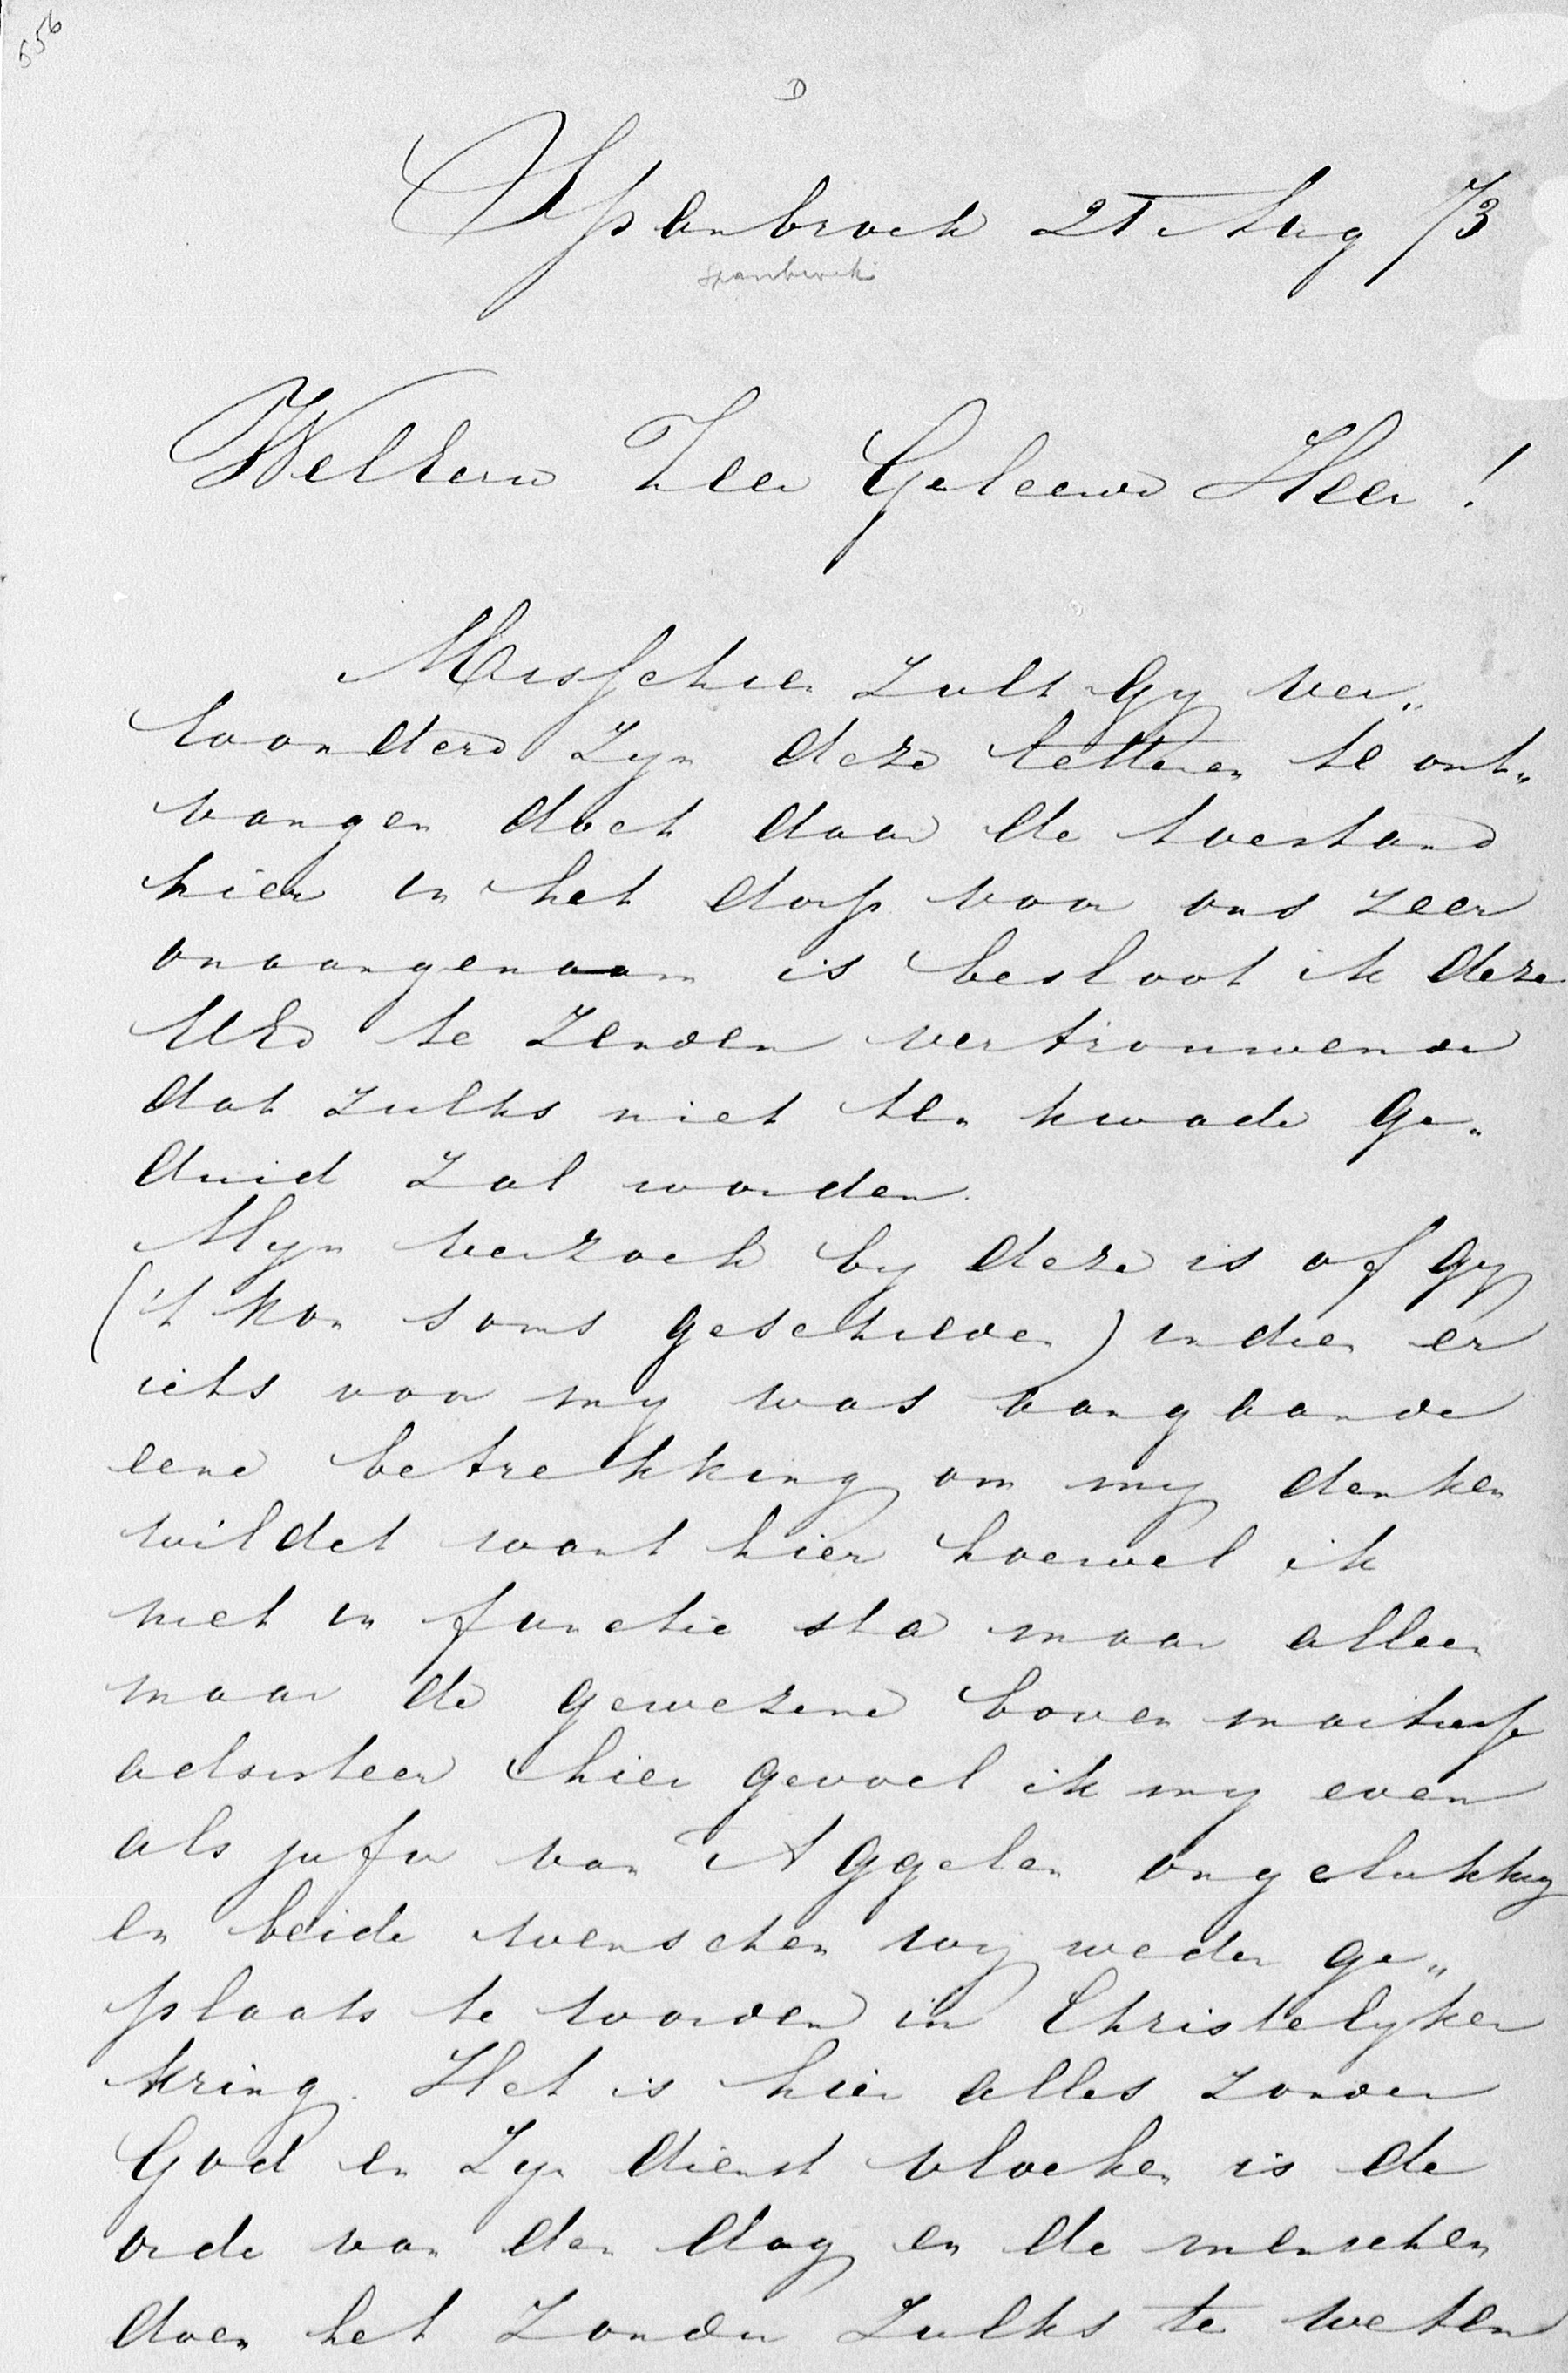 556
D
Spanbroek 21 Aug 73
Spanbroek
WelEerw Zeer Geleerde Heer!
Misschien zult Gy ver„
wonderd zyn deze letteren te ont„
vangen doch daar de toestand
hier in het dorp voor ons zeer
onaangenaam is besloot ik deze
UEd te zenden vertrouwende
dat zulks niet ten kwade ge„
duid zal worden.
Myn verzoek by deze is of Gy
('t kon soms geschieden) indien er
iets voor my was aangaande
eene betrekking om my denken
wildet want hier hoewel ik
niet in functie sta maar alleen
maar de gewezene boven
adsisteer hier gevoel ik my even
als jufr van Aggelen ongelukkig
en beide wenschen wy weder ge„
plaats te worden in Christelyken
kring. Het is hier alles zonder
God en Zyn dienst vloeken is de
orde van den dag en de menschen
doen het zonder zulks te weten